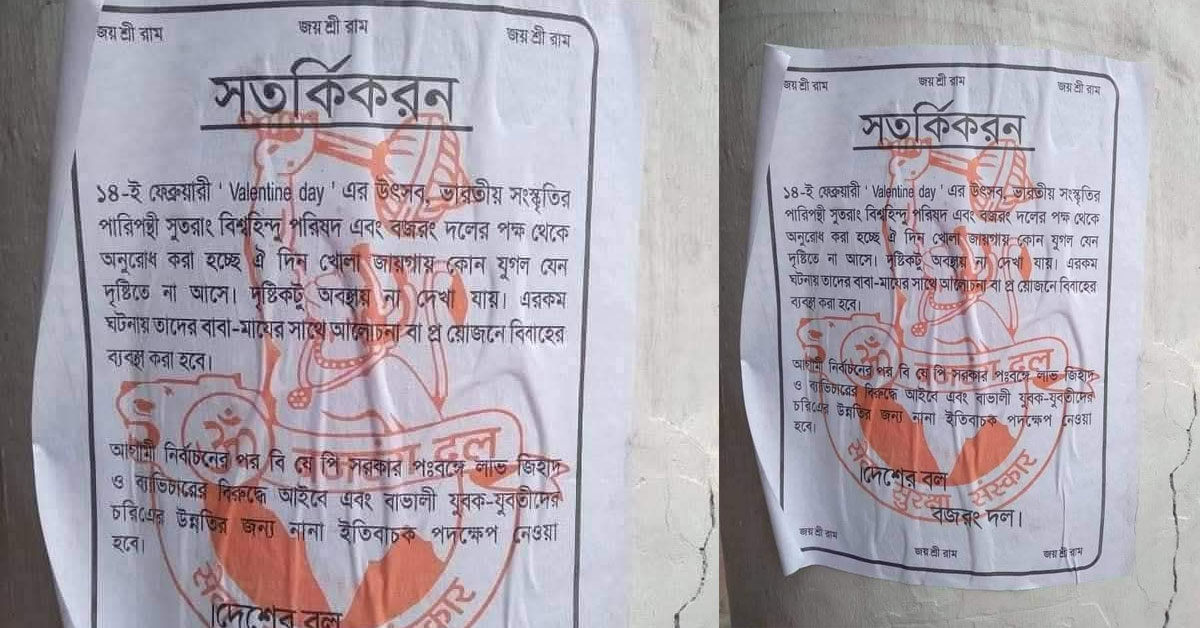 জয় শ্রী রাম জয় শ্রী রাম জয় শ্রী রাম
সতর্কিকরন
১৪-ই ফেব্রুয়ারী ' Valentine day ' এর উৎসব, ভারতীয় সংস্কৃতির
পারিপন্থী সুতরাং বিশ্বহিন্দু পরিষদ এবং বজরং দলের পক্ষ থেকে
অনুরোধ করা হচ্ছে ঐ দিন খোলা জায়গায় কোন যুগল যেন
দৃষ্টিতে না আসে। দৃষ্টিকটু অবস্থায় না দেখা যায়। এরকম
ঘটনায় তাদের বাবা-মায়ের সাথে আলোচনা বা প্র য়োজনে বিবাহের
ব্যবস্থা করা হবে।
ॐ बजरंग दल
আগামী নির্বাচনের পর বি যে পি সরকার পঃবঙ্গে লাভ জিহাদ
ও ব্যাভিচারের বিরুদ্ধে আইবে এবং বাঙালী যুবক-যুবতীদের
চরিত্রের উন্নতির জন্য নানা ইতিবাচক পদক্ষেপ নেওয়া
হবে।
দেশের বল
জয় শ্রী রাম জয় শ্রী রাম জয় শ্রী রাম
সতর্কিকরন
১৪-ই ফেব্রুয়ারী ' Valentine day ' এর উৎসব, ভারতীয় সংস্কৃতির
পারিপন্থী সুতরাং বিশ্বহিন্দু পরিষদ এবং বজরং দলের পক্ষ থেকে
অনুরোধ করা হচ্ছে ঐ দিন খোলা জায়গায় কোন যুগল যেন
দৃষ্টিতে না আসে। দৃষ্টিকটু অবস্থায় না দেখা যায়। এরকম
ঘটনায় তাদের বাবা-মায়ের সাথে আলোচনা বা প্র য়োজনে বিবাহের
ব্যবস্থা করা হবে।
ॐ बजरंग दल
আগামী নির্বাচনের পর বি যে পি সরকার পঃবঙ্গে লাভ জিহাদ
ও ব্যাভিচারের বিরুদ্ধে আইবে এবং বাঙালী যুবক-যুবতীদের
চরিত্রের উন্নতির জন্য নানা ইতিবাচক পদক্ষেপ নেওয়া
হবে।
দেশের বল
सुरक्षा संस्कार
বজরং দল।
জয় শ্রী রাম জয় শ্রী রাম জয় শ্রী রাম